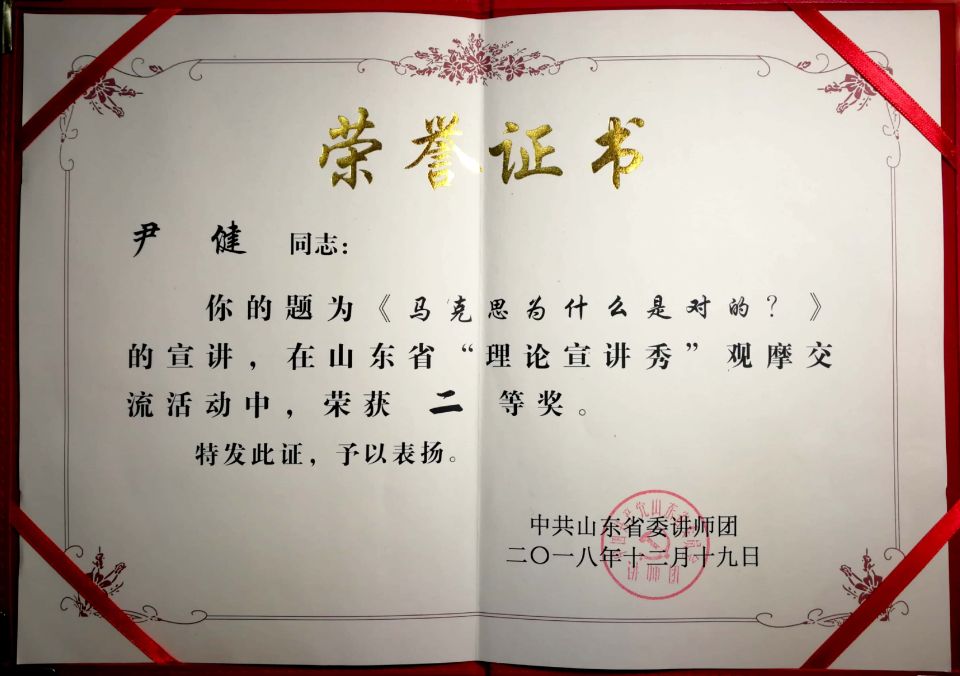 荣誉证书
尹健 同志：
你的题为《马克思为什么是对的？》
的宣讲，在山东省“理论宣讲秀”观摩交
流活动中，荣获 二 等奖。
特发此证，予以表扬。
中共山东省委讲师团
二〇一八年十二月十九日